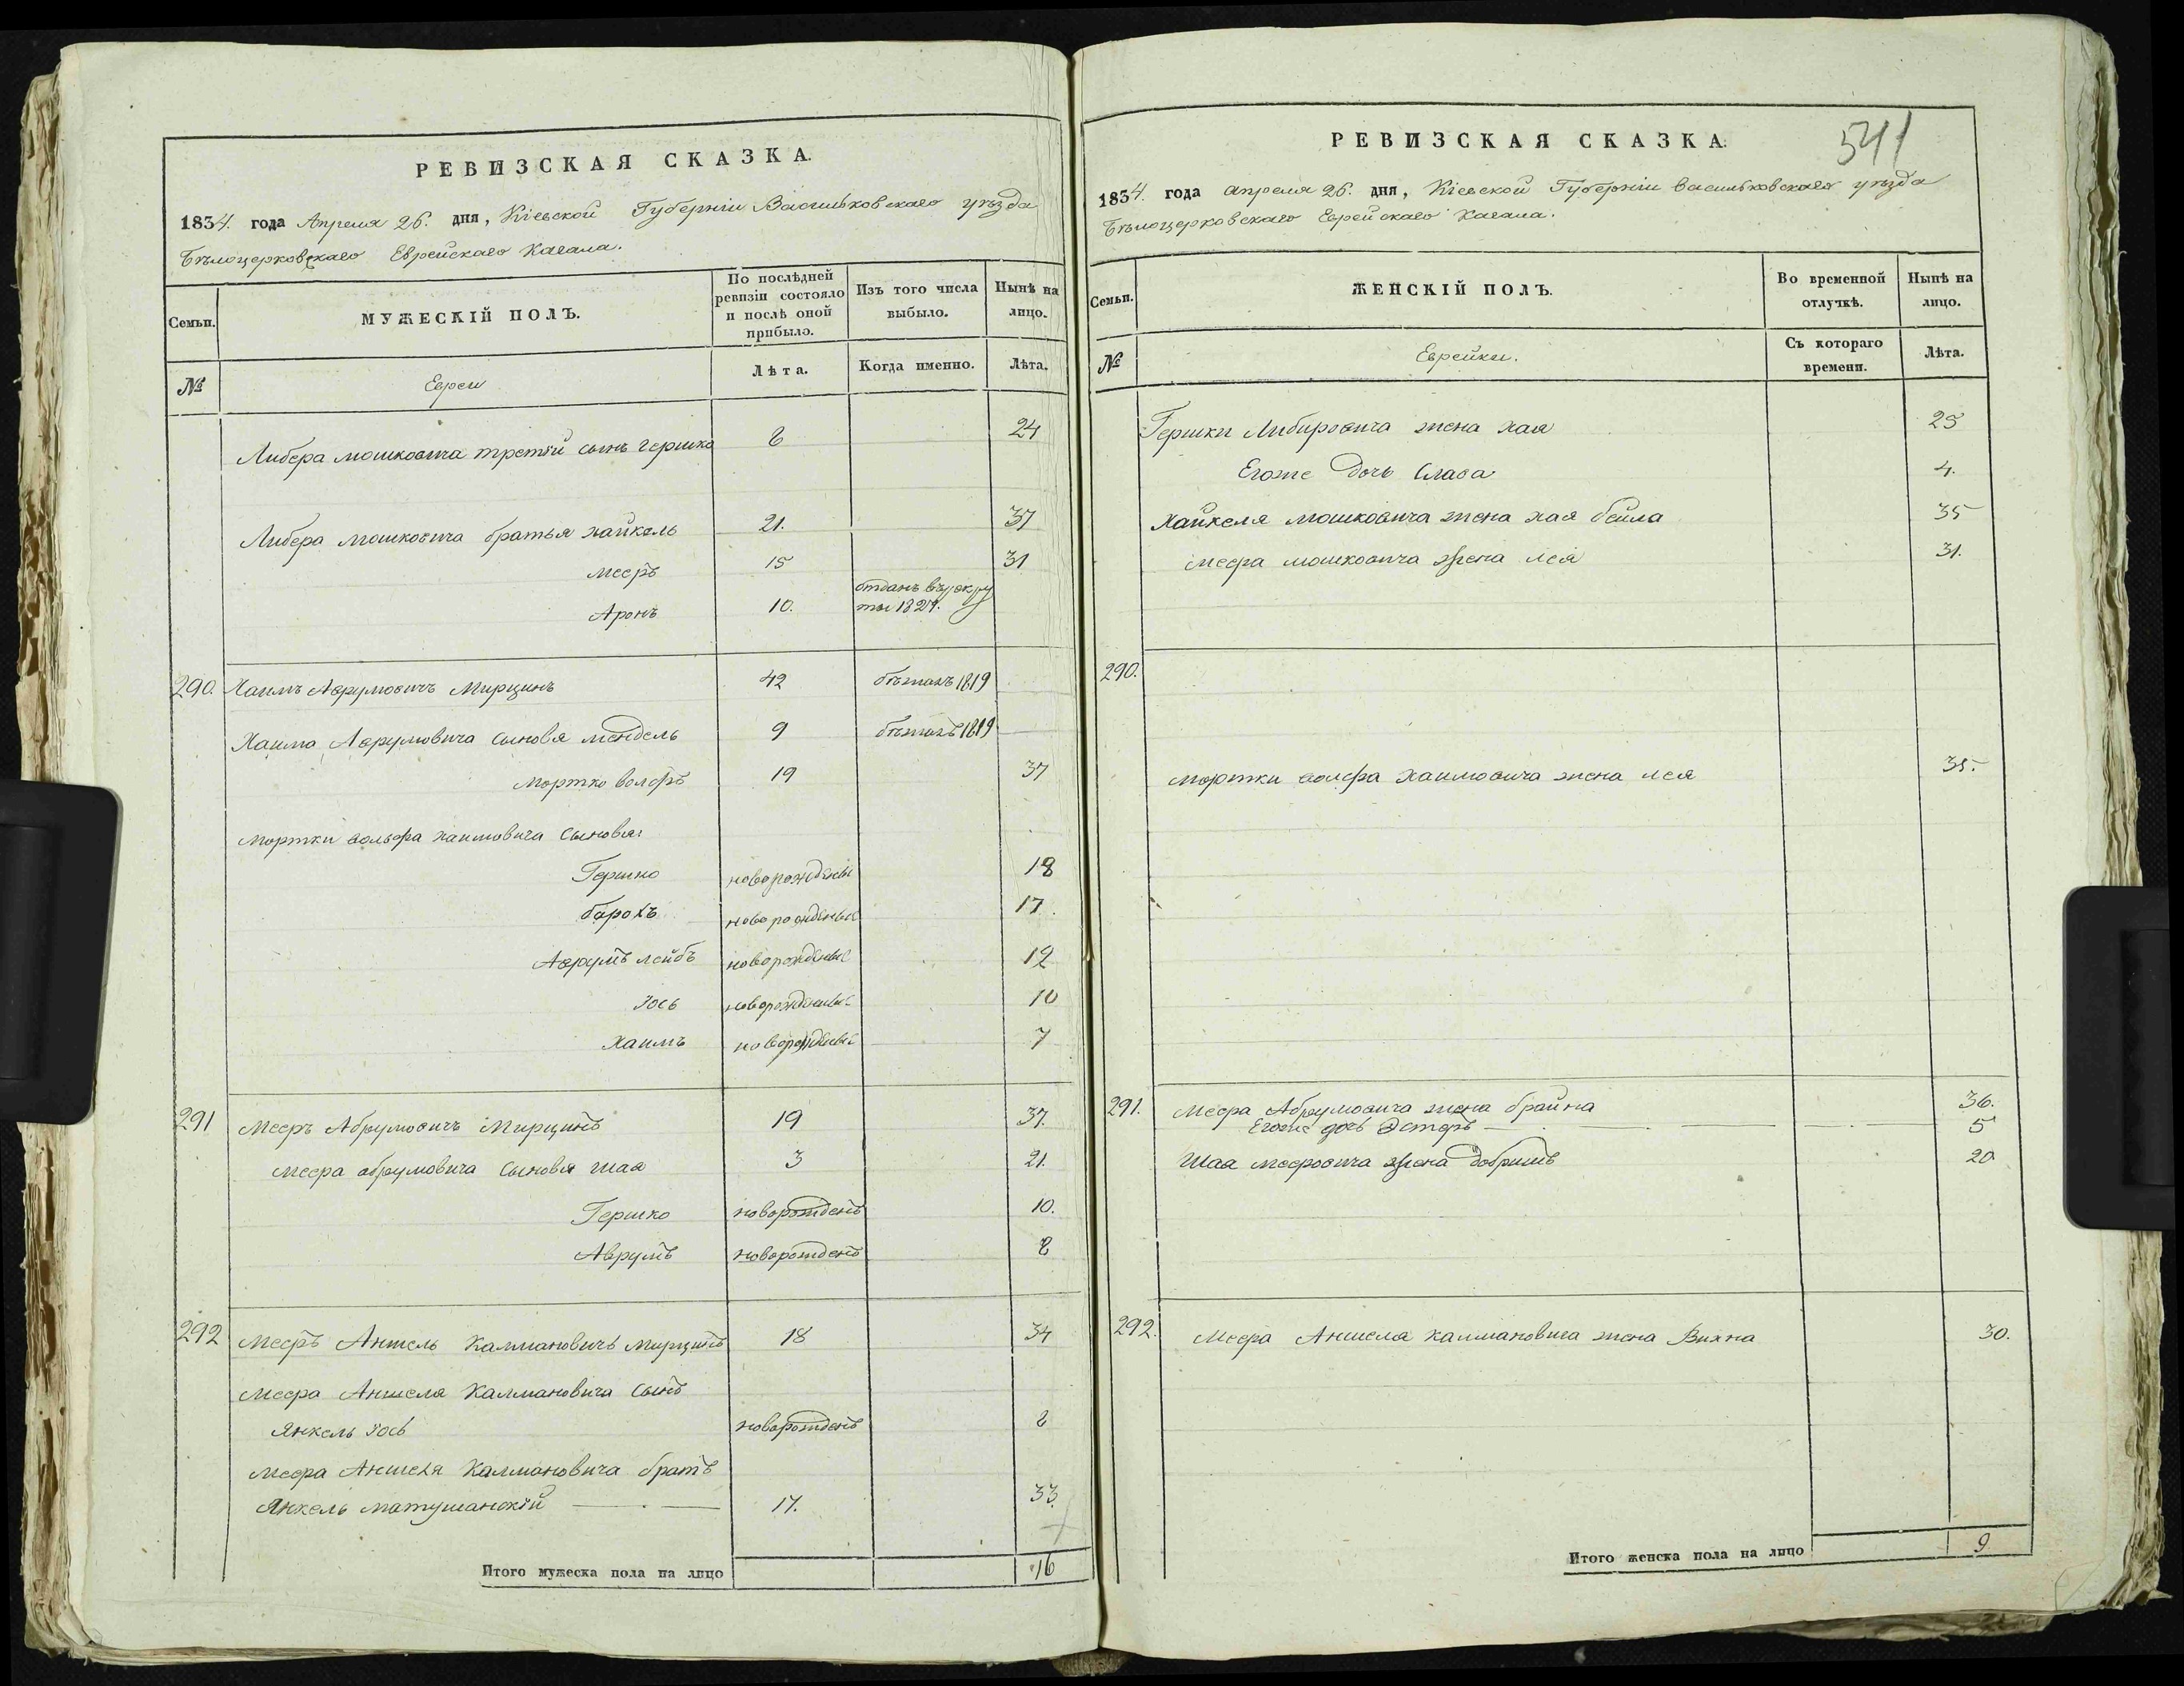 РЕВИЗСКАЯ СКАЗКА.
1834. года Апреля 26. дня, Кіевской Губерніи Васильковскаго уѣзда
Бѣлоцерковскаго Еврейскаго Кагала.
Семьи. МУЖЕСКІЙ ПОЛЪ. По послѣдней ревизіи состояло и послѣ оной прибыло. Изъ того числа выбыло. Нынѣ на лицо.
№ Евреи Лѣта. Когда именно. Лѣта.
Либера мошковича третій сынъ гершко 8 24
Либера мошковича братья хайкель 21. 37
мееръ 15 31
Аронъ 10. отданъ въ рекруты 1827.
290. Хаимъ Аврумовичъ Мирцинъ 42 бѣжалъ 1819
Хаима Аврумовича сыновя мендель 9 бѣжалъ 1819
мортко волфъ 19 37
мортки вольфа хаимовича сыновя:
Гершко новорожденые 18
борохъ новорожденые 17.
Аврумъ лейбъ новорожденые 12
Іось новорожденые 10
Хаимъ новорожденые 7
291 Мееръ Абрумовичъ Мирцинъ 19 37.
Меера абрумовича сыновя шая 3 21.
Гершко новорожденъ 10.
Аврумъ новорожденъ 8
292 Мееръ Аншель Калмановичъ Мирцинъ 18 34
Меера Аншеля Калмановича сынъ
Янкель Іось новорожденъ 8
Меера Аншеля Калмановича братъ
Янкель матушанскій 17. 33.
Итого мужеска пола на лицо 16
541
РЕВИЗСКАЯ СКАЗКА.
1834. года апреля 26. дня, Кіевской Губерніи васильковскаго уѣзда
Бѣлоцерковскаго Еврейскаго Кагала.
Семьи. ЖЕНСКІЙ ПОЛЪ. Во временной отлучкѣ. Нынѣ на лицо.
№ Еврейки. Съ котораго времени. Лѣта.
Гершки Либировича жена хая 25
Егоже дочь Слава 4.
Хайкеля мошковича жена хая бейла 35
меера мошковича жена лея 31.
290.
мортки волфа хаимовича жена лея 35.
291. Меера Абрумовича жена брайна 36.
Егоже дочь Эстеръ 5
Шая мееровича жена добришъ 20
292. Меера Аншеля калмановича жена Вихна 30.
Итого женска пола на лицо 9